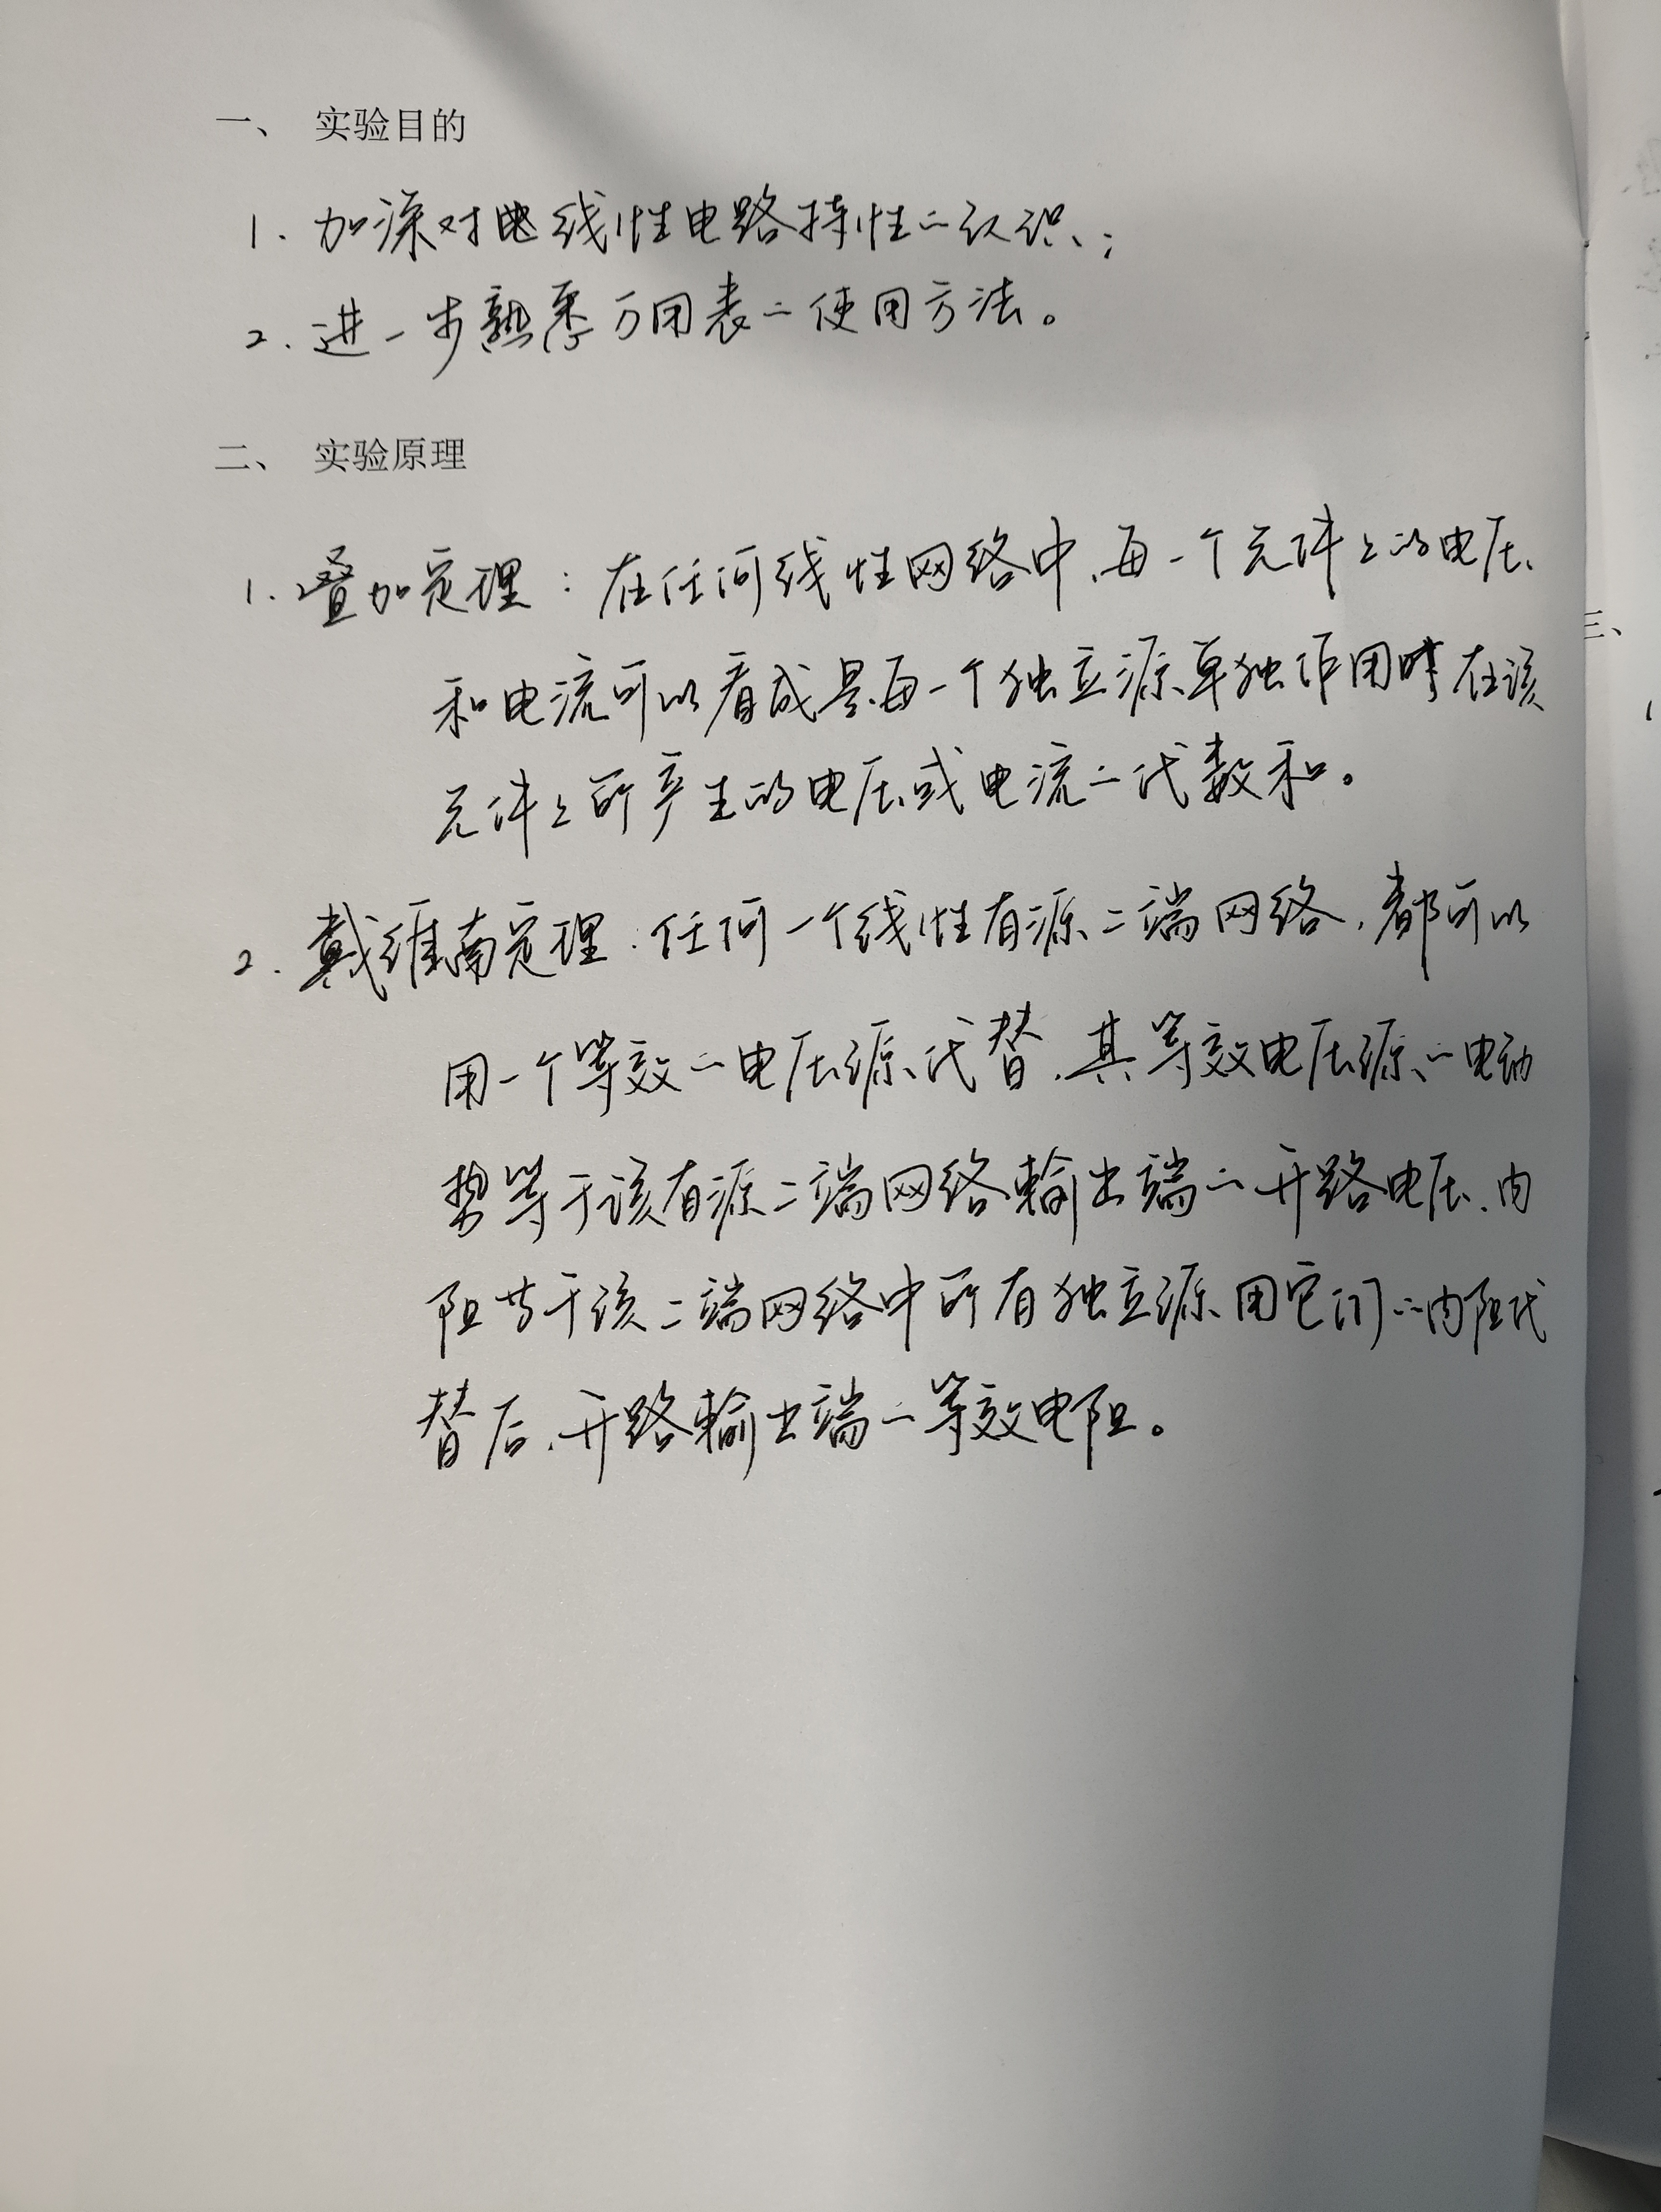 一、 实验目的
1. 加深对线性电路特性的认识;
2. 进一步熟悉万用表的使用方法。
二、 实验原理
1. 叠加定理：在任何线性网络中,每一个元件上的电压
和电流可以看成是每一个独立源单独作用时在该
元件上所产生的电压或电流的代数和。
2. 戴维南定理：任何一个线性有源二端网络,都可以
用一个等效的电压源代替,其等效电压源的电动
势等于该有源二端网络输出端的开路电压,内
阻等于该二端网络中所有独立源用它们的内阻代
替后,开路输出端的等效电阻。
三、